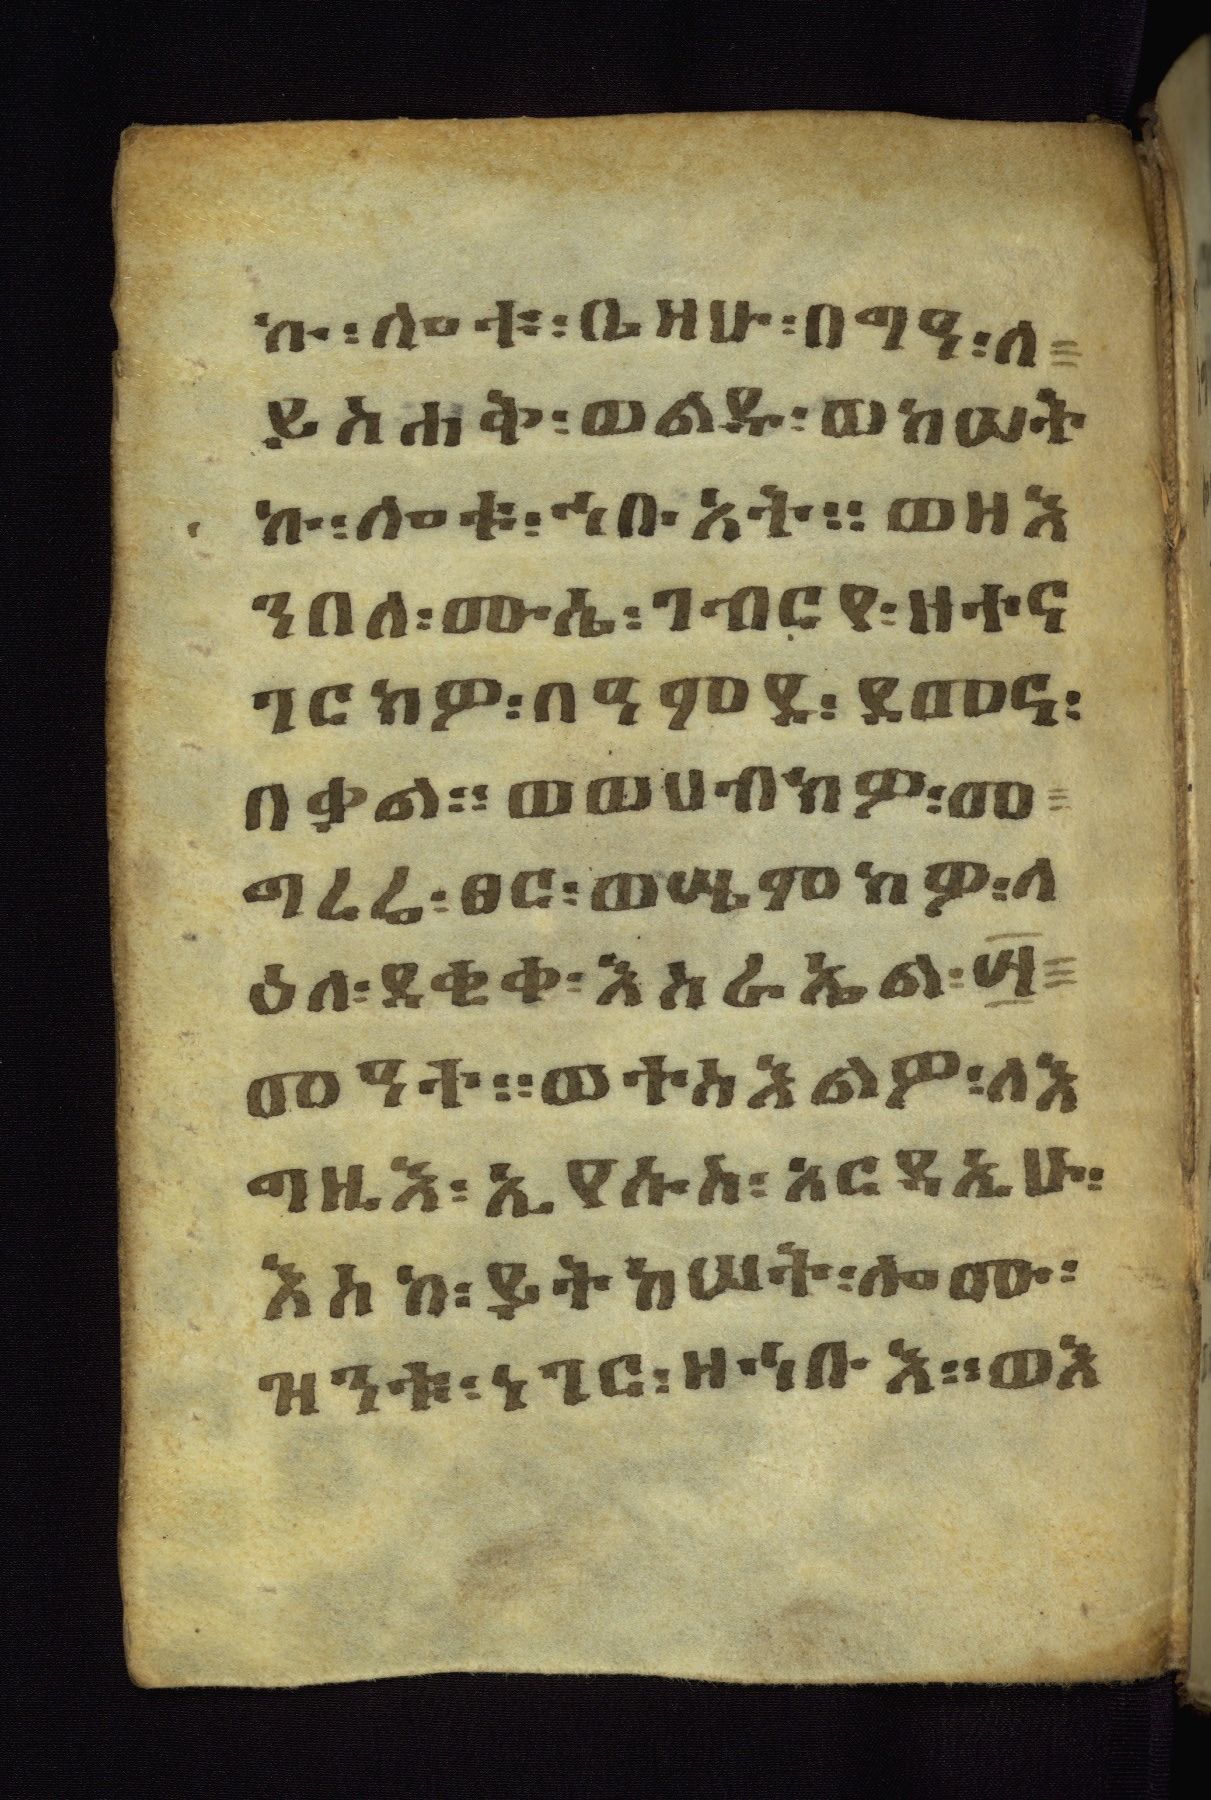 ኩ፡ሎቱ፡ቤዘሁ፡በግዓ፡ለ
ይስሐቅ፡ወልዱ፡ወከሠት
ኩ፡ሎቱ፡ኅቡአት። ወዘእ
ንበለ፡ሙሴ፡ገብርየ፡ዘተና
ገርክዎ፡በዓምደ፡ደመና፡
በቃል። ወወሀብክዎ፡መ
ግረሬ፡ፀር፡ወሤምክዎ፡ለ
ዕለ፡ደቂቀ፡እስራኤል፡፵
መዓተ። ወተስእልዎ፡ለእ
ግዚእ፡ኢየሱስ፡አርዳኢሁ፡
እስከ፡ይትከሠት፡ሎሙ፡
ዝንቱ፡ነገር፡ዘኅቡእ። ወእ